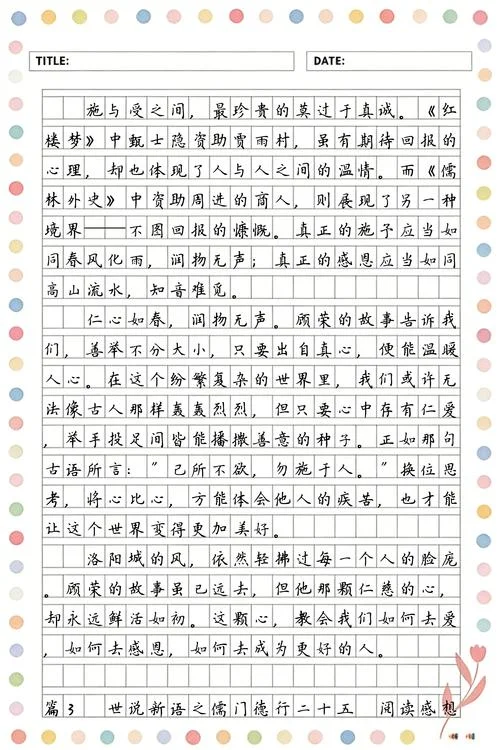 TITLE:
DATE:
施与受之间，最珍贵的莫过于真诚。《红
楼梦》中甄士隐资助贾雨村，虽有期待回报的
心理，却也体现了人与人之间的温情。而《儒
林外史》中资助周进的商人，则展现了另一种
境界——不图回报的慷慨。真正的施予应当如
同春风化雨，润物无声；真正的感恩应当如同
高山流水，知音难觅。
仁心如春，润物无声。顾荣的故事告诉我
们，善举不分大小，只要出自真心，便能温暖
人心。在这个纷繁复杂的世界里，我们或许无
法像古人那样轰轰烈烈，但只要心中存有仁爱
，举手投足间皆能播撒善意的种子。正如那句
古语所言："己所不欲，勿施于人。"换位思
考，将心比心，方能体会他人的疾苦，也才能
让这个世界变得更加美好。
洛阳城的风，依然轻拂过每一个人的脸庞
。顾荣的故事虽已远去，但他那颗仁慈的心，
却永远鲜活如初。这颗心，教会我们如何去爱
，如何去感恩，如何去成为更好的人。
篇3 世说新语之儒门德行二十五 阅读感想